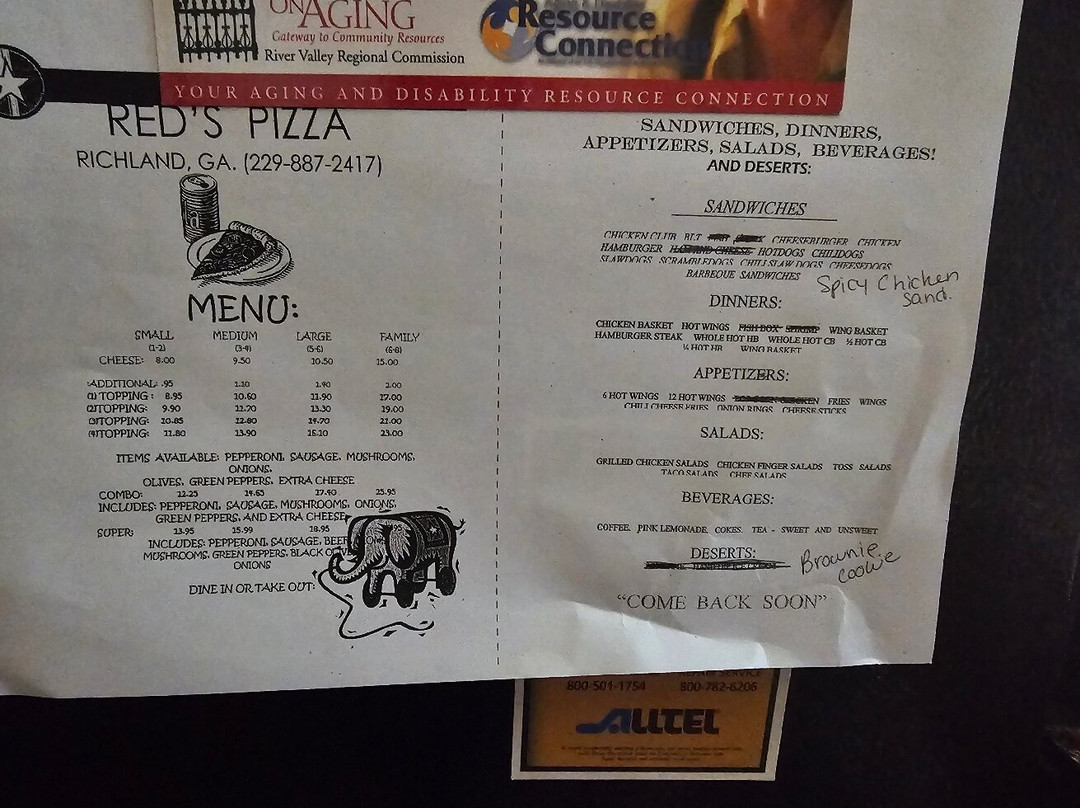 ON AGING
Gateway to Community Resources
River Valley Regional Commission
Resource
Connection
YOUR AGING AND DISABILITY RESOURCE CONNECTION
RED'S PIZZA
RICHLAND, GA. (229-887-2417)
MENU:
SMALL MEDIUM LARGE FAMILY
(1-2) (3-4) (5-6) (6-8)
CHEESE: 8.00 9.50 10.50 15.00
:ADDITIONAL: .95 1.10 1.40 2.00
(1) TOPPING : 8.95 10.60 11.90 17.00
(2)TOPPING: 9.90 11.70 13.30 19.00
(3)TOPPING: 10.85 12.80 14.70 21.00
(4)TOPPING: 11.80 13.90 16.10 23.00
ITEMS AVAILABLE: PEPPERONI, SAUSAGE, MUSHROOMS,
ONIONS,
OLIVES, GREEN PEPPERS, EXTRA CHEESE
COMBO: 12.25 14.65 17.40 25.95
INCLUDES: PEPPERONI, SAUSAGE, MUSHROOMS, ONIONS,
GREEN PEPPERS, AND EXTRA CHEESE
SUPER: 13.95 15.99 18.95
INCLUDES: PEPPERONI, SAUSAGE, BEEF
MUSHROOMS, GREEN PEPPERS, BLACK OLIVE
ONIONS
DINE IN OR TAKE OUT:
SANDWICHES, DINNERS,
APPETIZERS, SALADS, BEVERAGES!
AND DESERTS:
SANDWICHES
CHICKEN CLUB BLT CHEESEBURGER CHICKEN
HAMBURGER HAM AND CHEESE HOTDOGS CHILIDOGS
SLAWDOGS SCRAMBLEDOGS CHILI SLAW DOGS CHEESEDOGS
BARBEQUE SANDWICHES
Spicy Chicken
Sand.
DINNERS:
CHICKEN BASKET HOT WINGS FISH BOX SHRIMP WING BASKET
HAMBURGER STEAK WHOLE HOT HB WHOLE HOT CB ½ HOT CB
½ HOT HB WING BASKET
APPETIZERS:
6 HOT WINGS 12 HOT WINGS CHICKEN FRIES WINGS
CHILI CHEESE FRIES ONION RINGS CHEESE STICKS
SALADS:
GRILLED CHICKEN SALADS CHICKEN FINGER SALADS TOSS SALADS
TACO SALADS CHEF SALADS
BEVERAGES:
COFFEE, PINK LEMONADE, COKES, TEA - SWEET AND UNSWEET
DESERTS:
Brownie
Cookie
"COME BACK SOON"
REPAIR SERVICE
800-501-1754 800-782-6206
ALLTEL